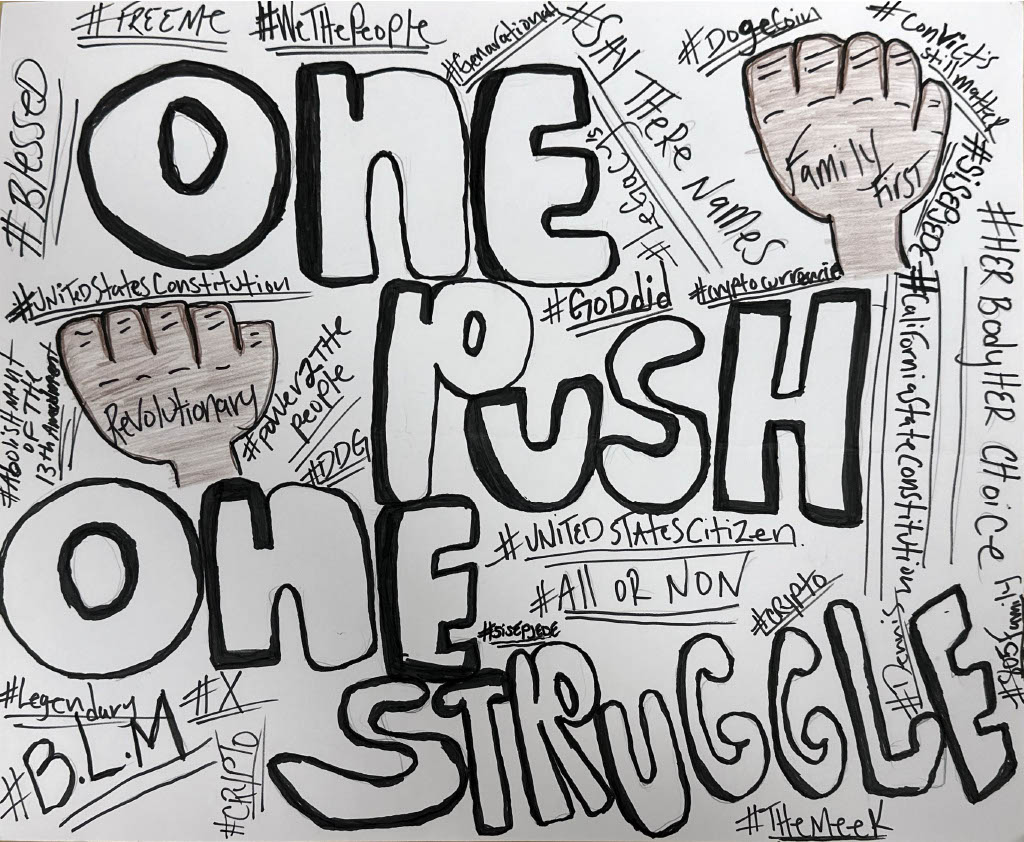 #FREEMe
#WeThePeople
#Genarational
#SAY THeRe NAMeS
#Dogecoin
#Convict's
still matter
#Blessed
ONE
#Legacy's
Family
First
#SiSEPUEDE
#HER Body HER CHoice
#UNiTedStatesConstitution
#GoDdid
#cryptocurrencie
#CaliforniaStateConstitution
Revolutionary
#poweR2THe
people
#DDG
#Abolishment
OF THe
13th Amendment
PUSH
ONE
#UNiTED STATesCitiZen
#All OR NON
#cRypto
#sisepuede
#Dennis
#Legendary
#X
#B.L.M
#CRiPTO
STRUGGLE
#THeMeeK